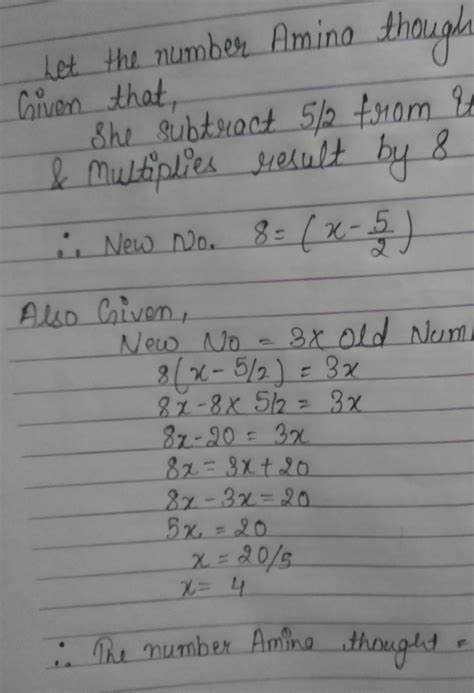 Let the number Amina though
Given that,
She subtract 5/2 from
& Multiplies result by 8
∴ New No. 8 = (x - 5/2)
Also Given,
New No = 3x Old Num
8(x - 5/2) = 3x
8x - 8x 5/2 = 3x
8x - 20 = 3x
8x = 3x + 20
8x - 3x = 20
5x = 20
x = 20/5
x = 4
∴ The number Amina thought =